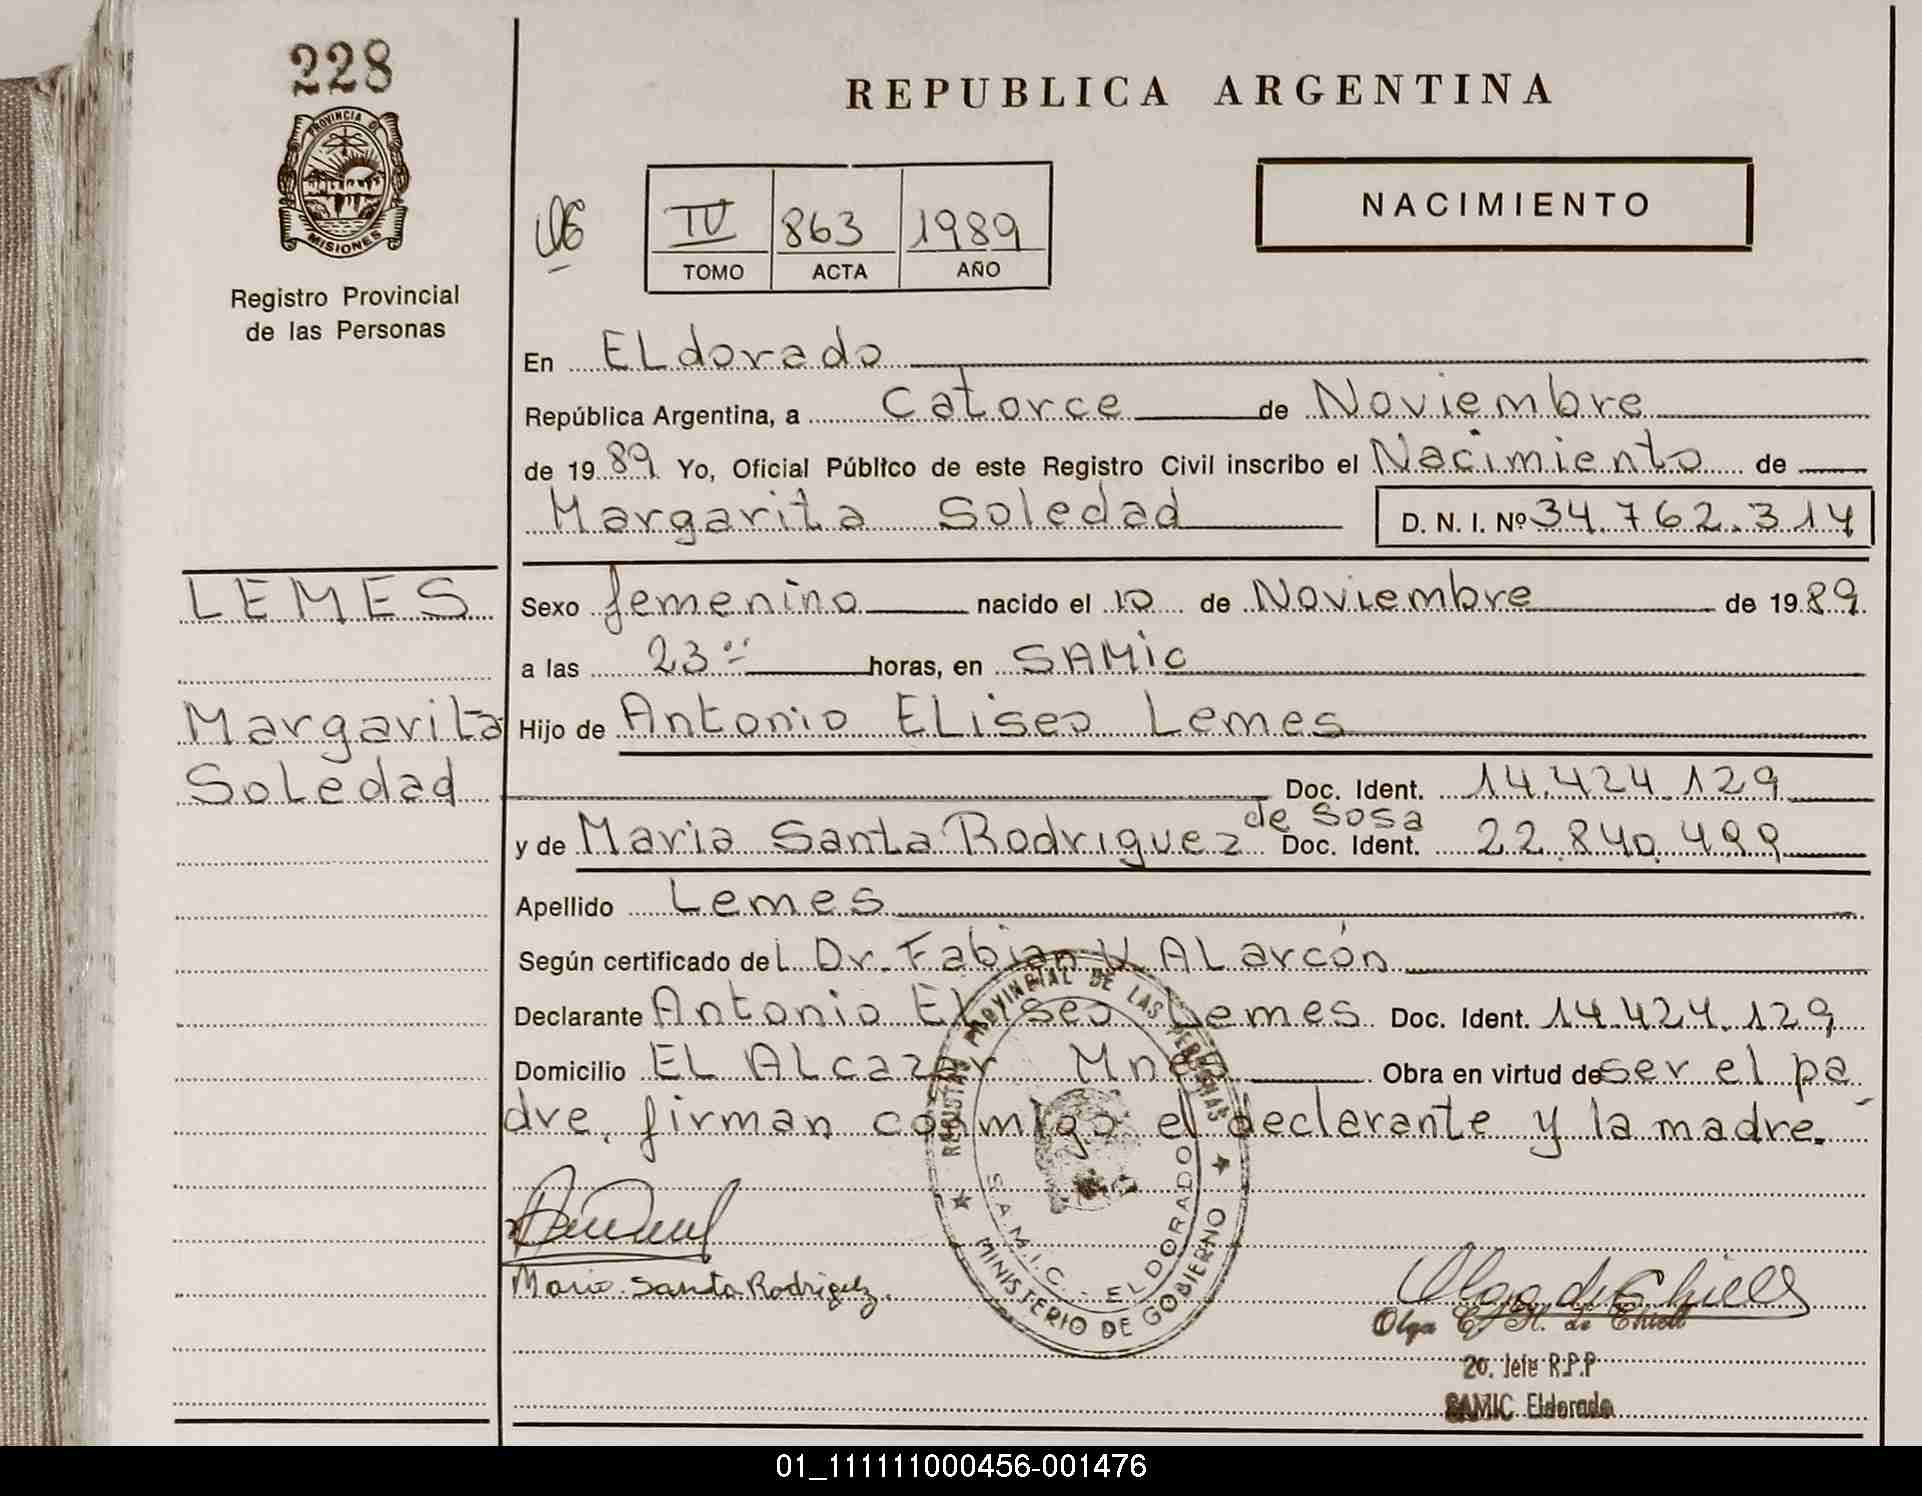 228
REPUBLICA ARGENTINA
PROVINCIA DE
MISIONES
Registro Provincial
de las Personas
IV 863 1989
TOMO ACTA AÑO
NACIMIENTO
En ELdorado
República Argentina, a catorce de Noviembre
de 1989 Yo, Oficial Público de este Registro Civil inscribo el Nacimiento de
Margarita Soledad D. N. I. Nº 34.762.314
LEMES
Margarita
Soledad
Sexo femenino nacido el 10 de Noviembre de 1989
a las 23 horas, en SAMic
Hijo de Antonio ELiseo Lemes
Doc. Ident. 14.424.129
de Sosa
y de Maria Santa Rodriguez Doc. Ident. 22.840.499
Apellido Lemes
Según certificado del Dr. Fabian V ALarcón
Declarante Antonio Eliseo Lemes Doc. Ident. 14.424.129
Domicilio EL ALcazar Mnes Obra en virtud de ser el pa
dre, firman conmigo el declarante y la madre.
REGISTRO PROVINCIAL DE LAS PERSONAS
S.A.M.I.C. - ELDORADO
MINISTERIO DE GOBIERNO
Maria Santa Rodriguez
Olga de Chiell
Olga E. H. de Chiell
2o. Jefe R.P.P
SAMIC Eldorado
01_111111000456-001476